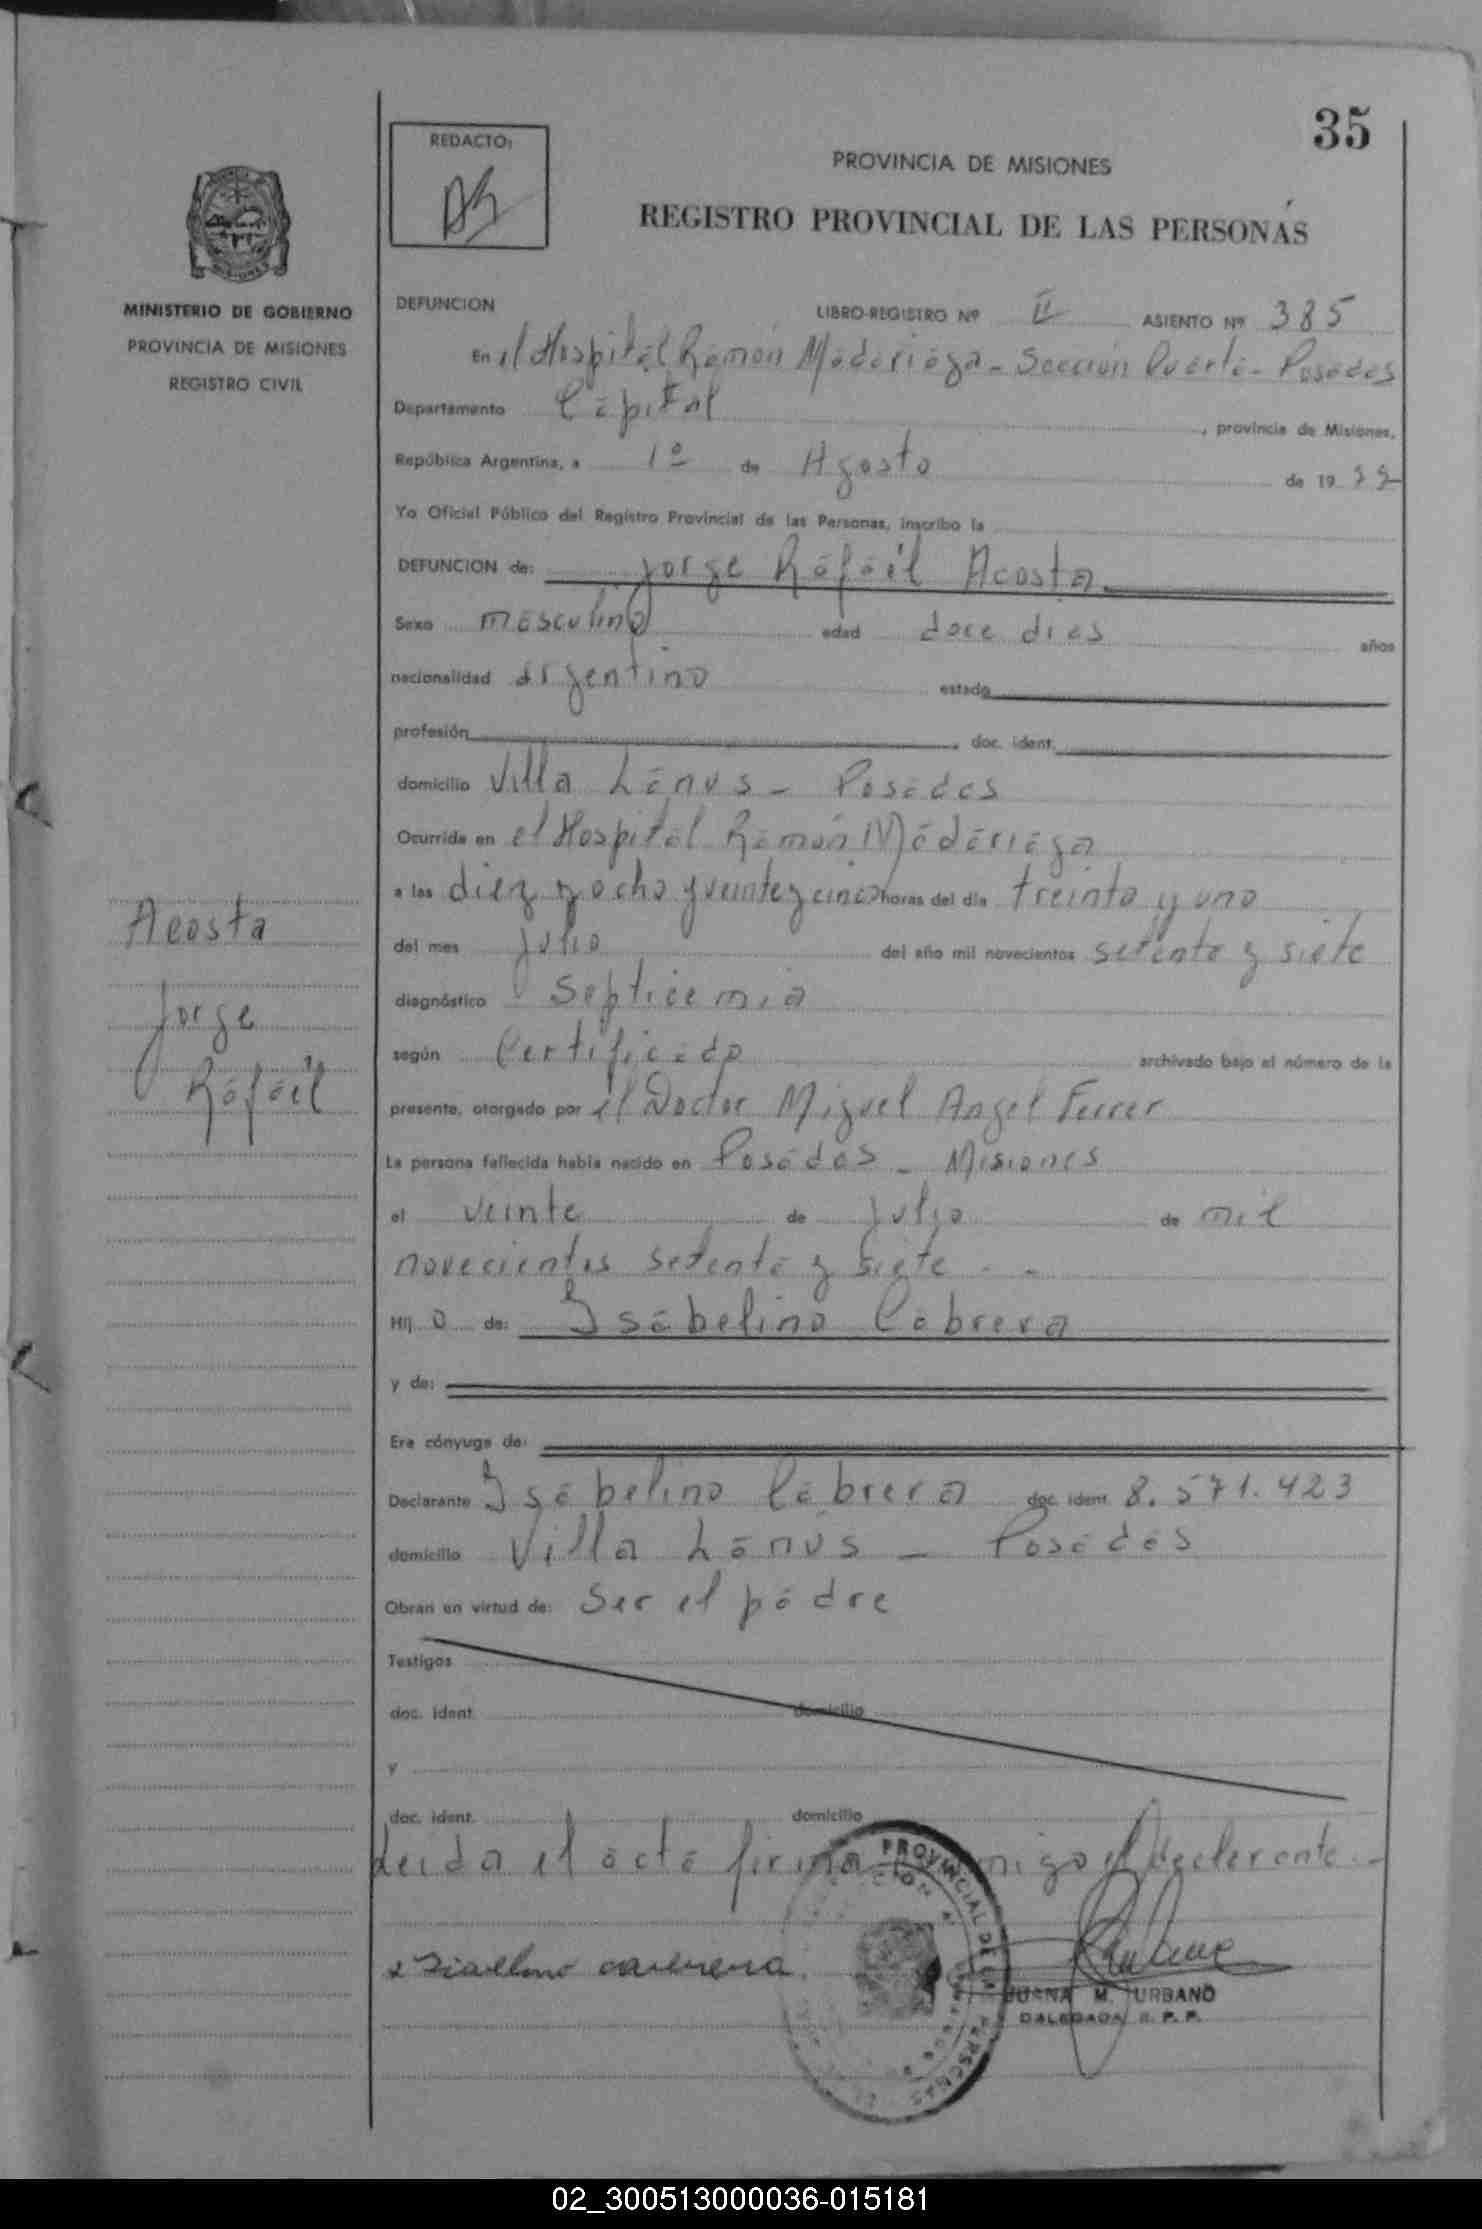 35
REDACTO:
PROVINCIA DE MISIONES
REGISTRO PROVINCIAL DE LAS PERSONAS
MINISTERIO DE GOBIERNO
PROVINCIA DE MISIONES
REGISTRO CIVIL
DEFUNCION LIBRO-REGISTRO Nº II ASIENTO Nº 385
En el Hospital Ramón Madariaga - Sección Cuarta - Posadas
Departamento Capital, provincia de Misiones,
República Argentina, a 1º de Agosto de 1977
Yo Oficial Público del Registro Provincial de las Personas, inscribo la
DEFUNCION de: Jorge Rafael Acosta
Sexo masculino edad doce dias años
nacionalidad argentino estado
profesión, doc. ident.
domicilio Villa Lanus - Posadas
Ocurrida en el Hospital Ramón Madariaga
a las diez y ocho y veinte y cinco horas del día treinta y uno
del mes Julio del año mil novecientos setenta y siete
diagnóstico Septicemia
según Certificado archivado bajo el número de la
presente, otorgado por el Doctor Miguel Angel Ferrer
La persona fallecida había nacido en Posadas - Misiones
el veinte de Julio de mil
novecientos setenta y siete - -
Hij o de: Isabelino Cabrera
y de:
Era cónyuge de:
Declarante Isabelino Cabrera doc. ident. 8.571.423
domicilio Villa Lanús - Posadas
Obran en virtud de: Ser el padre
Testigos
doc. ident. domicilio
y
doc. ident. domicilio
Leida el acta firma conmigo el declarante.-
Acosta
Jorge
Rafael
PROVINCIAL DE LAS PERSONAS
JUANA M. URBANO
DALEGADA R. P. P.
02_300513000036-015181